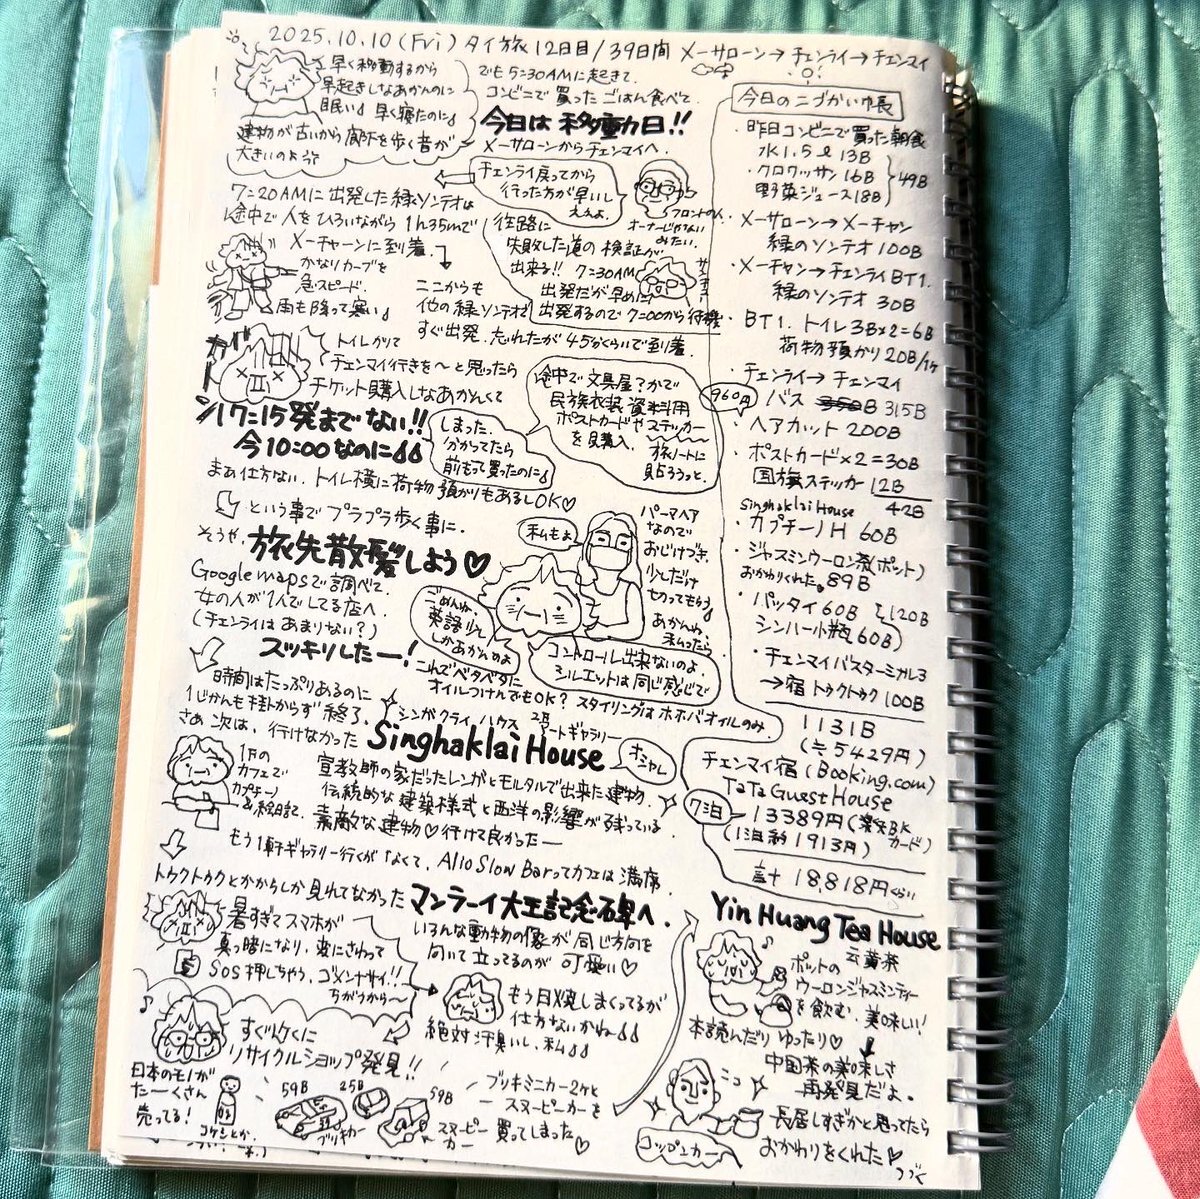 2025.10.10 (Fri) タイ旅12日目/39日間 メーサローン→チェンライ→チェンマイ
早く移動するから
早起きしなあかんのに
眠い 早く寝たのに
建物が古いから廊下を歩く音が
大きいのよう
でも5:30AMに起きて
コンビニで買ったごはん食べて
今日は移動日!!
メーサローンからチェンマイへ
チェンライ戻ってから
行った方が早いし
ええよ
フロントの人
オーナーじゃない
みたい
7:20AMに出発した緑ソンテオは
途中で人をひろいながら1h35mで
メーチャーンに到着
かなりカーブを
急スピード
雨も降って寒い
往路に
失敗した道の検証が
出来る!! 7:30AM
出発だが早めに
出発するので7:00から待機
ここからも
他の緑ソンテオで
すぐ出発 忘れたが45分くらいで到着
ガーン
トイレかりて
チェンマイ行きを〜と思ったら
チケット購入しなあかんくて
17:15発までない!!
今10:00なのに
しまった
分かってたら
前もって買ったのに
途中で文具屋?かで
民族衣装資料用
ポストカードやステッカー
を購入
旅ノートに
貼ろうっと
まあ仕方ない トイレ横に荷物預かりもあるしOK♡
という事でブラブラ歩く事に
そうや、旅先散髪しよう♡
Google mapsで調べて
女の人が1人でしてる店へ
(チェンライはあまりない?)
スッキリしたー!
私もよ
パーマヘア
なので
おじけづき
少しだけ
切ってもらう
ごめんね
英語少
しかあかんのよ
コントロール出来ないのよ
シルエットは同じ感じで
これでベタベタに
オイルつけんでもOK? スタイリングはホホバオイルのみ
時間はたっぷりあるのに
1じかんも掛からず終了
さぁ次は、行けなかった Singhaklai House
シンガクライ ハウス
アートギャラリー
オシャレ
1Fの
カフェで
カプチーノ
&絵日記
宣教師の家だったレンガとモルタルで出来た建物
伝統的な建築様式と西洋の影響が残っている
素敵な建物♡行けて良かったー
もう1軒ギャラリー行くがなくて、Allo Slow Barってカフェは満席
トゥクトゥクとかからしか見れてなかった マンラーイ大王記念碑へ
暑すぎてスマホが
真っ暗になり、変にさわって
SOS押しちゃう、ゴメンナサイ!!
ちがうから〜
いろんな動物の像が同じ方向を
向いて立ってるのが可愛い♡
もう日焼しまくってるが
仕方ないかね
絶対汗臭いし、私
すぐ近くに
リサイクルショップ発見!!
日本のモノが
たーくさん
売ってる!
コケシとか
59B
ブリキカー
25B
59B
スヌーピー
カー
ブリキミニカー2ケと
スヌーピーカーを
買ってしまった♡
今日のこづかい帳
・昨日コンビニで買った朝食
水1.5ℓ 13B
・クロワッサン 16B
野菜ジュース 18B
49B
・メーサローン→メーチャン
緑のソンテオ 100B
・メーチャン→チェンライBT1.
緑のソンテオ 30B
・BT1. トイレ3B×2=6B
荷物預かり20B/1ケ
・チェンライ→チェンマイ
960円
バス 315B
・ヘアカット 200B
・ポストカード×2=30B
国旗ステッカー 12B
42B
Singhaklai House
・カプチーノH 60B
・ジャスミンウーロン茶(ポット)
おかわりくれた。89B
・パッタイ60B
シンハー小瓶60B
120B
・チェンマイバスターミナル3
→宿 トゥクトゥク 100B
1131B
(≒5429円)
チェンマイ宿(Booking.com)
TaTa Guest House
7泊
13389円(楽天BK
カード)
(1泊約1913円)
計 18,818円くらい
Yin Huang Tea House
云黄茶
ポットの
ウーロンジャスミンティー
を飲む、美味しい!
本読んだりゆったり♡
中国茶の美味しさ
再発見だよ。
ニコ
長居しすぎかと思ってたら
おかわりをくれた♡
コップンカー
つづく